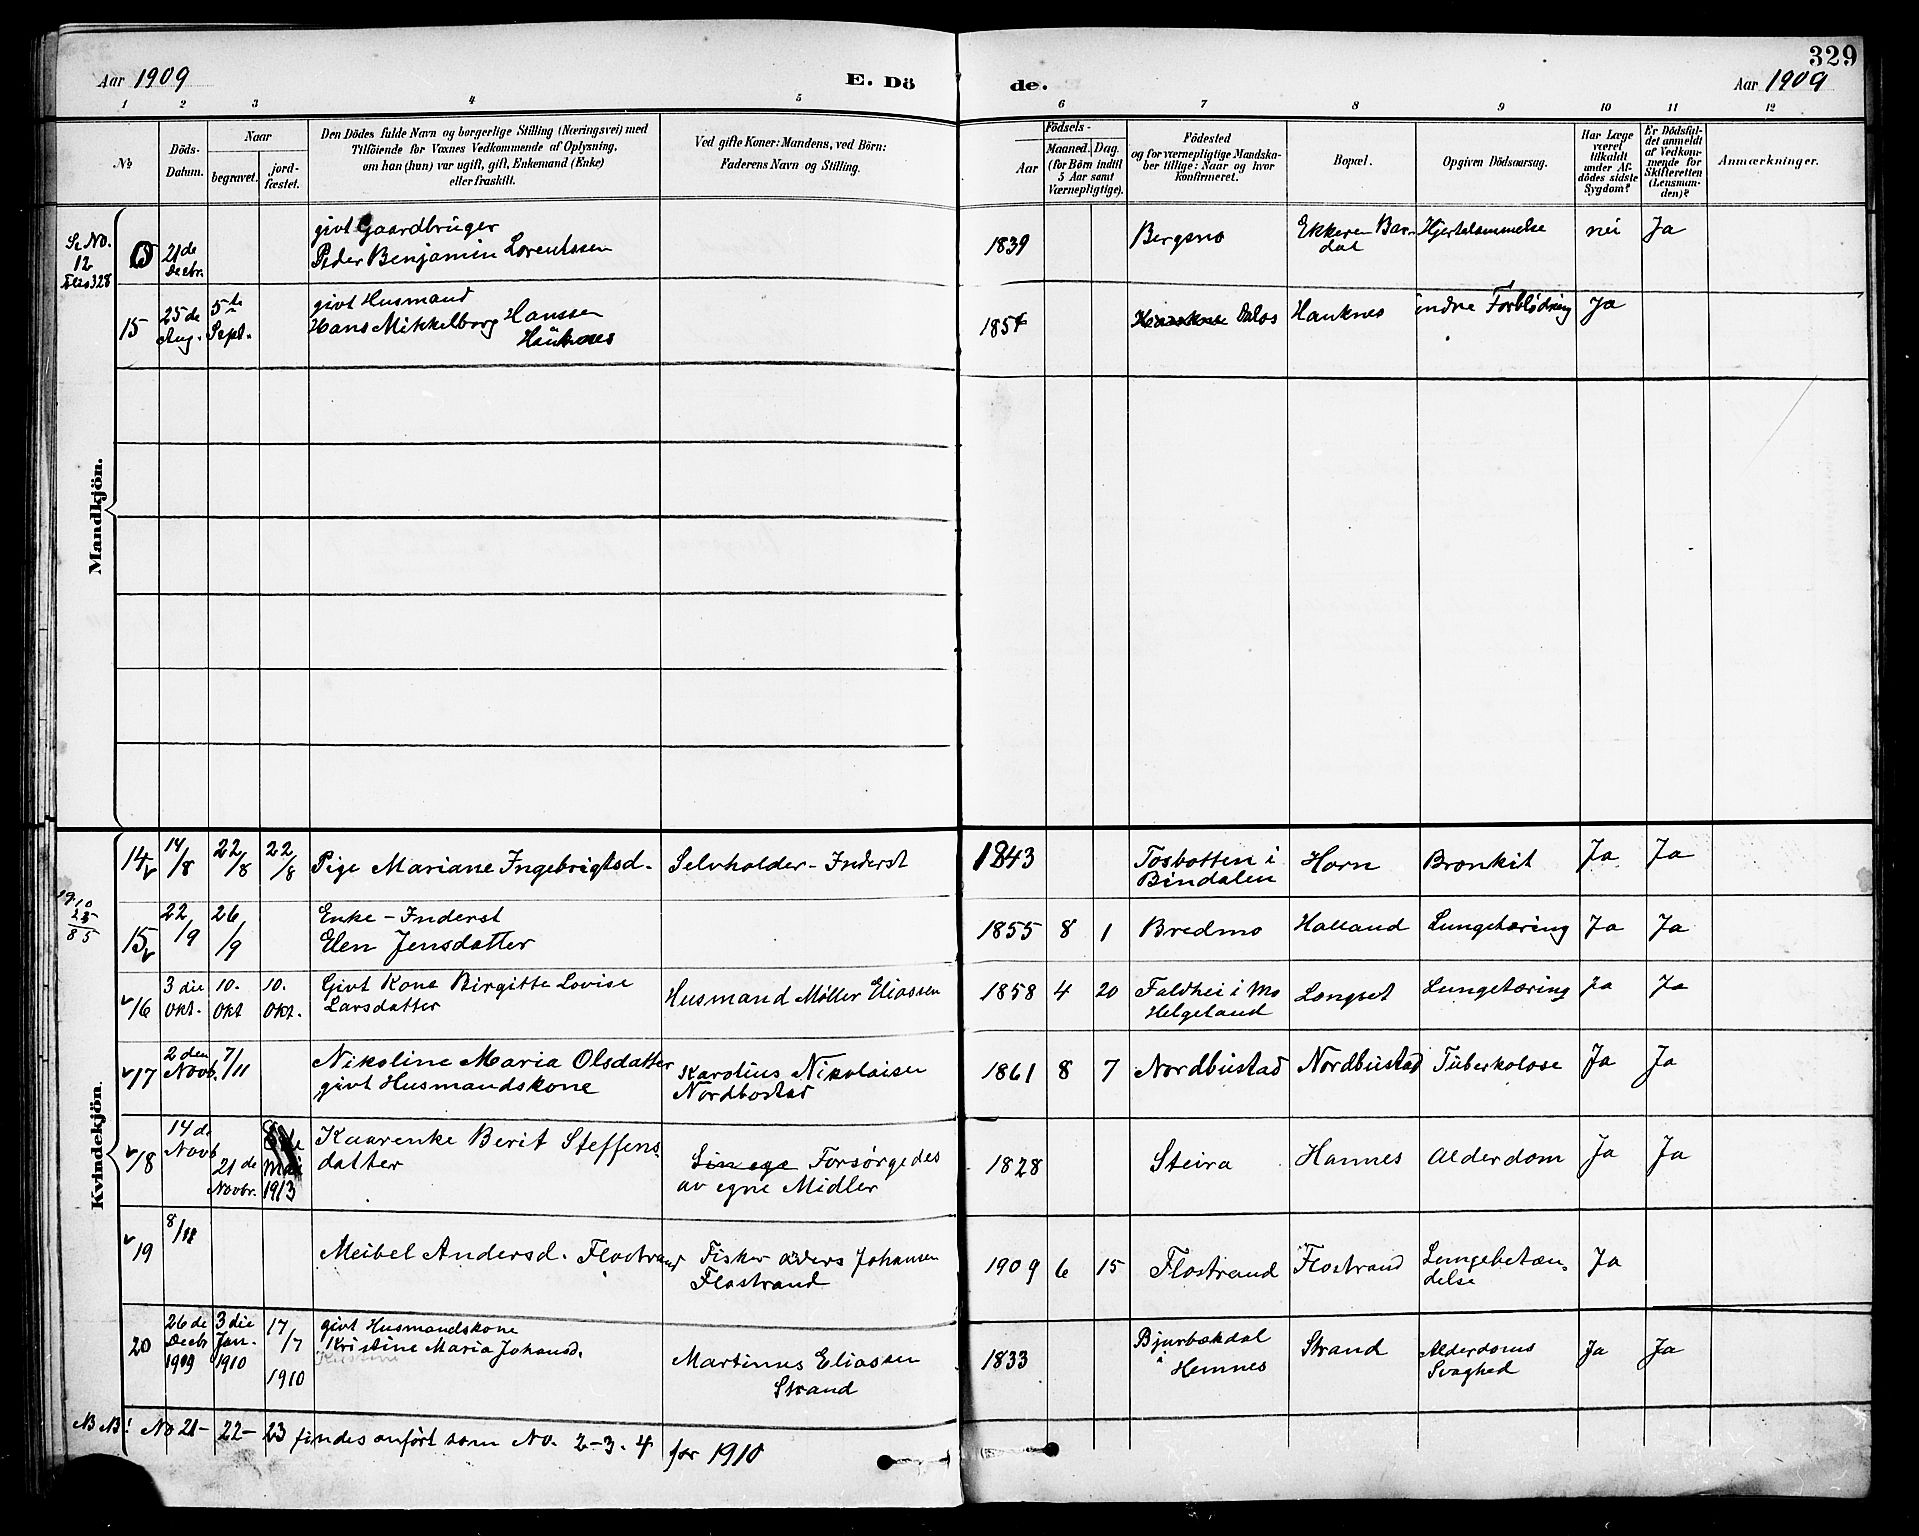 329
Aar 1909
E. Dö
de.
Aar 1909
1 2 3 4 5 6 7 8 9 10 11 12
№
Döds-
Datum.
Naar
begravet.
jord-
fæstet.
Den Dödes fulde Navn og borgerlige Stilling (Næringsvei) med
Tilföiende for Voxnes Vedkommende af Oplysning,
om han (hun) var ugift, gift, Enkemand (Enke)
eller fraskilt.
Ved gifte Koner: Mandens, ved Börn:
Faderens Navn og Stilling.
Födsels-
Aar
Maaned. Dag.
(for Börn indtil
5 Aar samt
Værnepligtige).
Födested
og for værnepligtige Mandska-
ber tillige: Naar og hvor
konfirmeret.
Bopæl.
Opgiven Dödsaarsag.
Har Læge
været
tilkaldt
under Af-
dödes sidste
Sygdom?
Er Dödsfal-
det anmeldt
af Vedkom-
mende for
Skifteretten
(Lensman-
den)?
Anmærkninger.
Mandkjön.
Se No.
12
328
21de
Decbr.
givt Gaardbruger
Peder Benjamin Lorentssen
1839
Bergsno
Ekkeren Bar-
dal
Hjertelammelse
nei
Ja
15
25de
Aug.
5te
Sept.
givt Husmand
Hans Mikkelborg Hanssen
Hauknes
Dalos
Hauknes
indre Forblødning
Ja
Kvindekjön.
14
14/8
22/8
22/8
Pige Mariane Ingebrigtsd.
Selvholder - Inderst
1843
Tosbotten i
Bindalen
Horn
Bronkit
Ja
Ja
1910
85
15
22/9
26/9
Enke - Inderst
Elen Jensdatter
1855 8 1
Bredmo
Halland
Lungetæring
Ja
Ja
16
3die
Okt.
10.
Okt
10.
Okt.
Givt Kone Birgitte Lovise
Larsdatter
Husmand Møller Eliassen
1858 4 20
Faldhei i Mo
Helgeland
Langset
Lungetæring
Ja
Ja
17
2den
Novb.
7/11
Nikoline Maria Olsdatter
givt Husmandskone
Karolius Nikolaisen
Nordbostad
1861 8 7
Nordbustad
Nordbustad
Tuberkolose
Ja
Ja
18
14de
Novb
21de
Novbr.
Mai
1913
Kaarenke Berit Steffens-
datter
Forsørgedes
av egne Midler
1828
Steira
Hannes
Alderdom
Ja
Ja
19
8/11
Meibel Andersd. Flostrand
Fisker Anders Johansen
Flostrand
1909 6 15
Flostrand
Flostrand
Lungebetæn-
delse
Ja
20
26de
Decbr
1909
3die
Jan.
1910
17/7
1910
givt Husmandskone
Kristine Maria Johansd.
Martinus Eliassen
Strand
1833
Bjurbækdal
i
Hemnes
Strand
Alderdoms
Svaghed
Ja
Ja
NB! No 21- 22- 23 findes anført som No. 2-3.4 for 1910